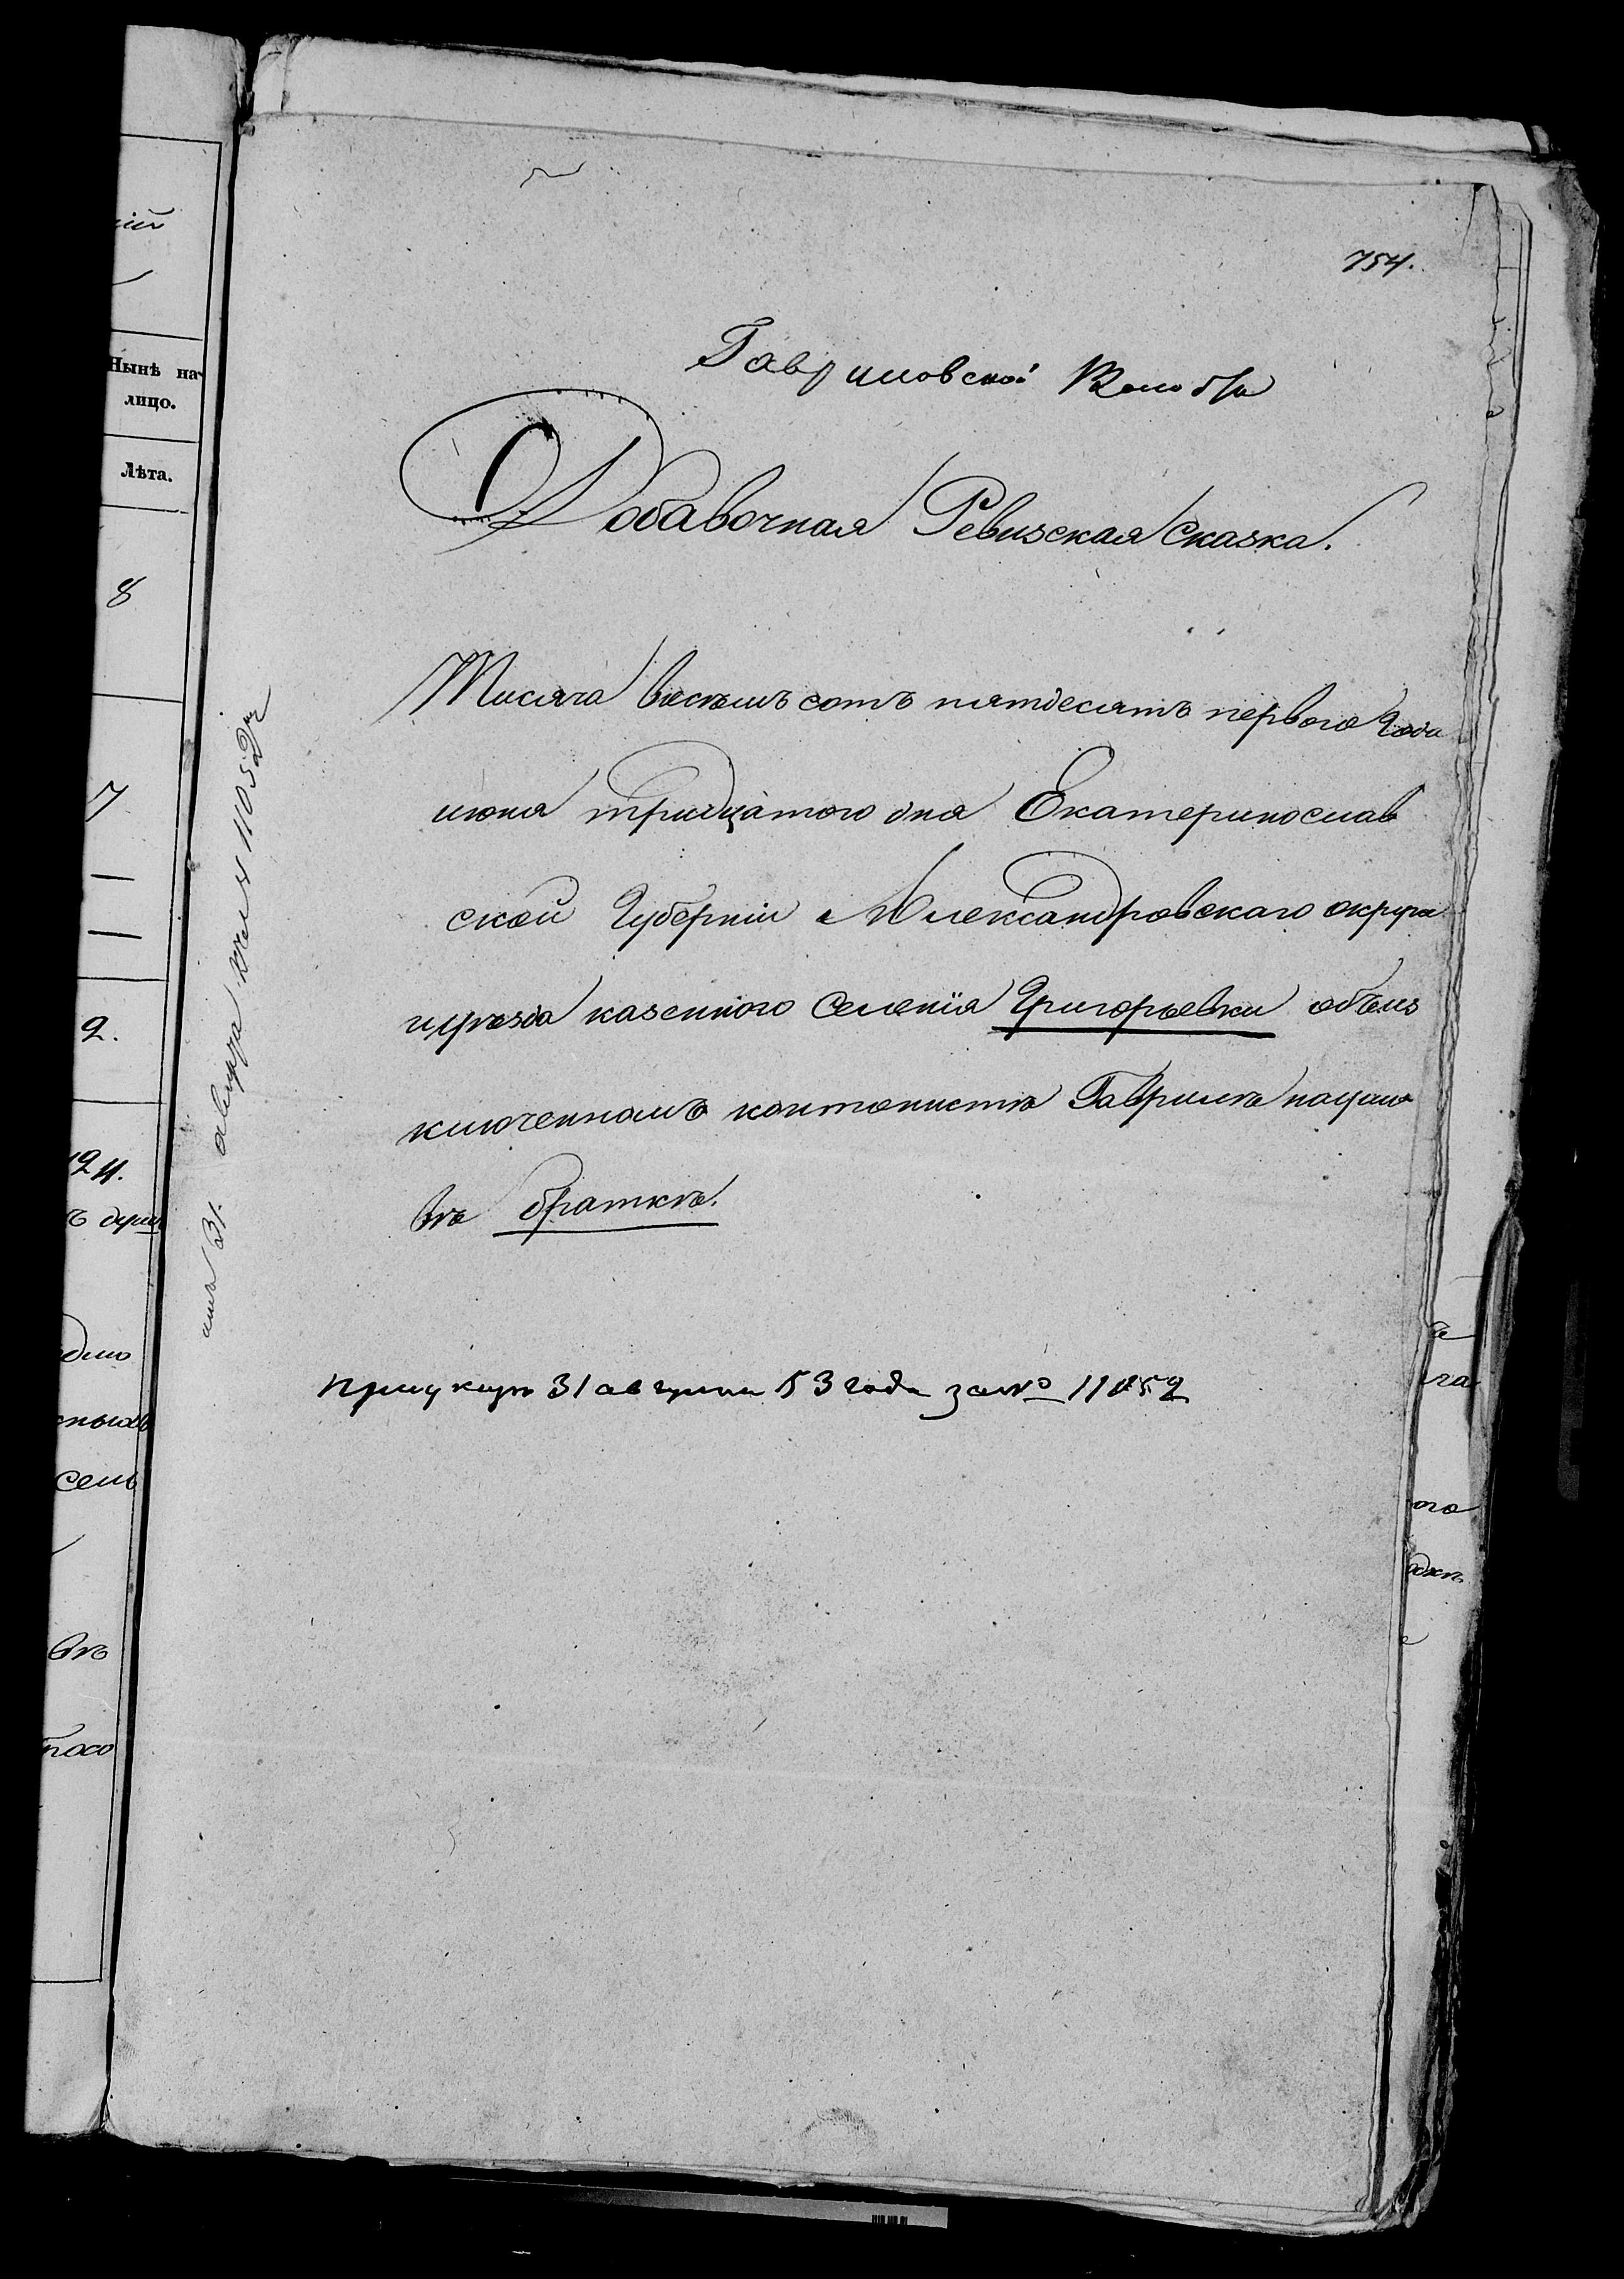 754.
Гавриловской Волости
Добавочная Ревизская Сказка.
Тисяча восемь сотъ пятдесятъ первого Года
июня тридцатого дня Екатеринослав
ской Губерніи Александровскаго округа
и уѣзда казенного Селенія Григорьевки объ из
ключенномъ кантонистѣ Гаврилѣ
браткѣ.
При указѣ 31 августа 53 года за № 11052
31 августа 11052
Нынѣ на-
лицо.
Лѣта.
8
7
2.